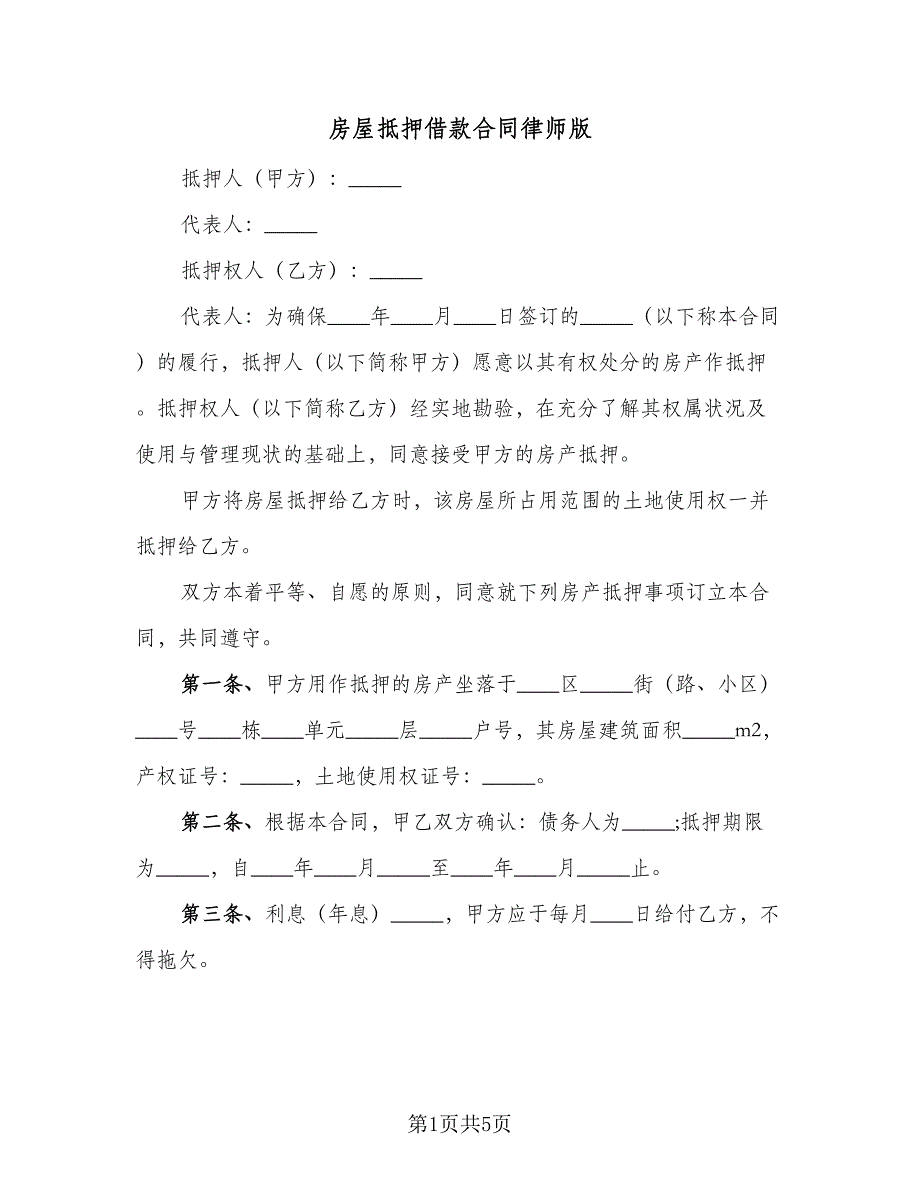 房屋抵押借款合同律师版
抵押人（甲方）：_____
代表人：_____
抵押权人（乙方）：_____
代表人：为确保____年____月____日签订的_____（以下称本合同
）的履行，抵押人（以下简称甲方）愿意以其有权处分的房产作抵押
。抵押权人（以下简称乙方）经实地勘验，在充分了解其权属状况及
使用与管理现状的基础上，同意接受甲方的房产抵押。
甲方将房屋抵押给乙方时，该房屋所占用范围的土地使用权一并
抵押给乙方。
双方本着平等、自愿的原则，同意就下列房产抵押事项订立本合
同，共同遵守。
第一条、甲方用作抵押的房产坐落于____区_____街（路、小区）
____号____栋____单元_____层_____户号，其房屋建筑面积_____m2，
产权证号：_____，土地使用权证号：_____。
第二条、根据本合同，甲乙双方确认：债务人为_____;抵押期限
为_____，自____年____月_____至____年____月_____止。
第三条、利息（年息）_____，甲方应于每月____日给付乙方，不
得拖欠。
第1页共5页